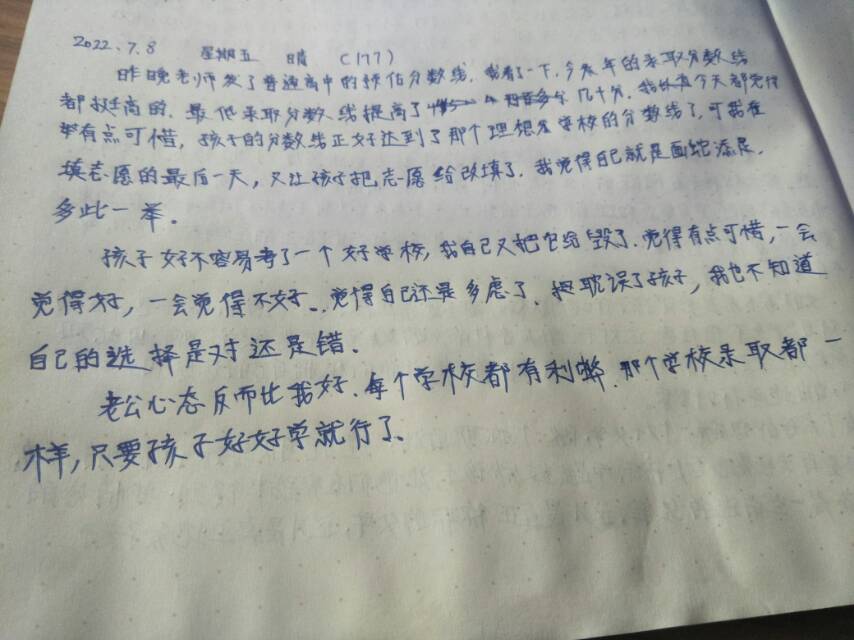 2022.7.8 星期五 晴 (177)
昨晚老师发了普通高中的预估分数线,我看了一下,今年的录取分数线
都挺高的,最低录取分数线提高了几十分,我今天都觉得
有点可惜,孩子的分数线正好达到了那个理想学校的分数线了,可我在
填志愿的最后一天,又让孩子把志愿给改填了,我觉得自己就是画蛇添足,
多此一举。
孩子好不容易考了一个好学校,我自己又把它给毁了,觉得有点可惜,一会
觉得好,一会觉得不好..觉得自己还是多虑了,耽误了孩子,我也不知道
自己的选择是对还是错.
老公心态反而比我好.每个学校都有利弊.那个学校录取都一
样,只要孩子好好学就行了、